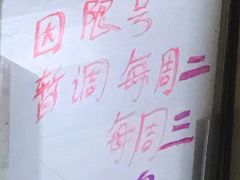 因限号
暂调每周二
每周三